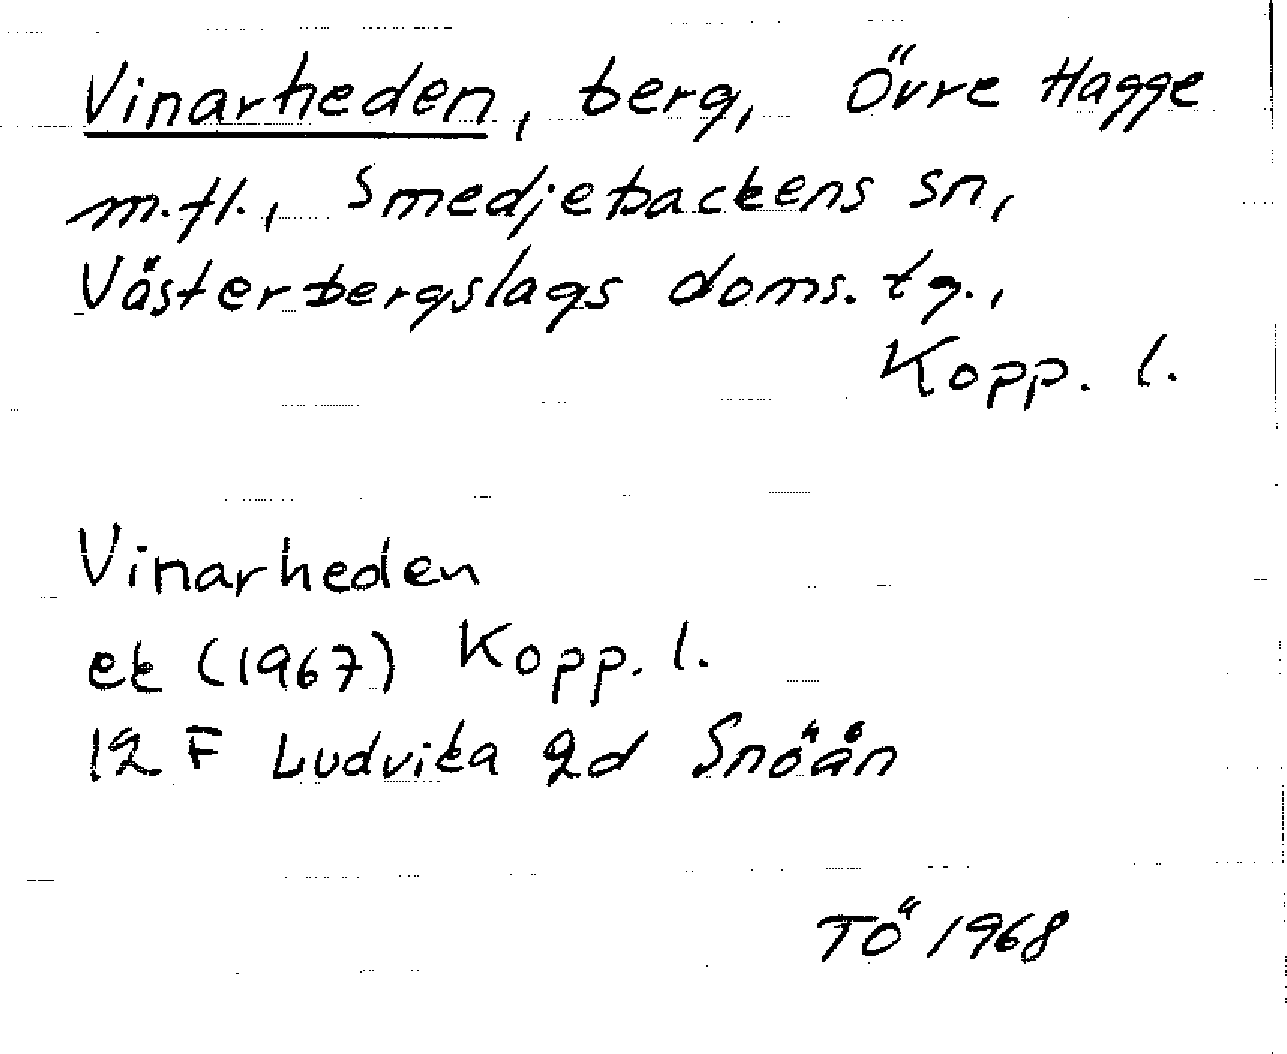 Vinarheden, berg, Övre Hagge
m.fl., Smedjebackens sn,
Västerbergslags doms. tg.,
Kopp. l.
Vinarheden
ek (1967) Kopp. l.
12 F Ludvika 2d Snöån
TÖ 1968